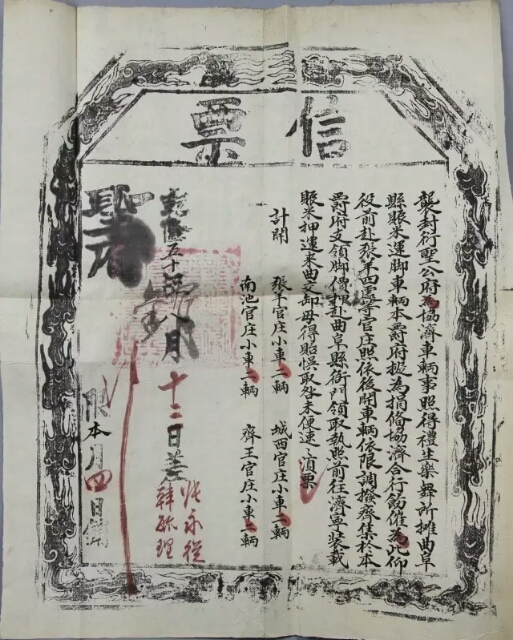 信票
襲封衍聖公府為協濟車輛事照得禮生樂舞所攤曲阜
縣賬米運脚車輛本爵府擬為捐僱協濟合行飭催為此仰
役前赴張羊四
等官庄照依後開車輛依限調撥齊集於本
爵府支領脚價押赴曲阜縣衙門領取執照前往濟寧裝載
賬米押運來曲交卸毋得貽悞取咎未便速速須票
計開
張羊官庄小車二輛
城西官庄小車二輛
南池官庄小車二輛
齊王官庄小車二輛
乾隆五十
年
八月
十二日差
張永從
韓
理
限本月四日銷